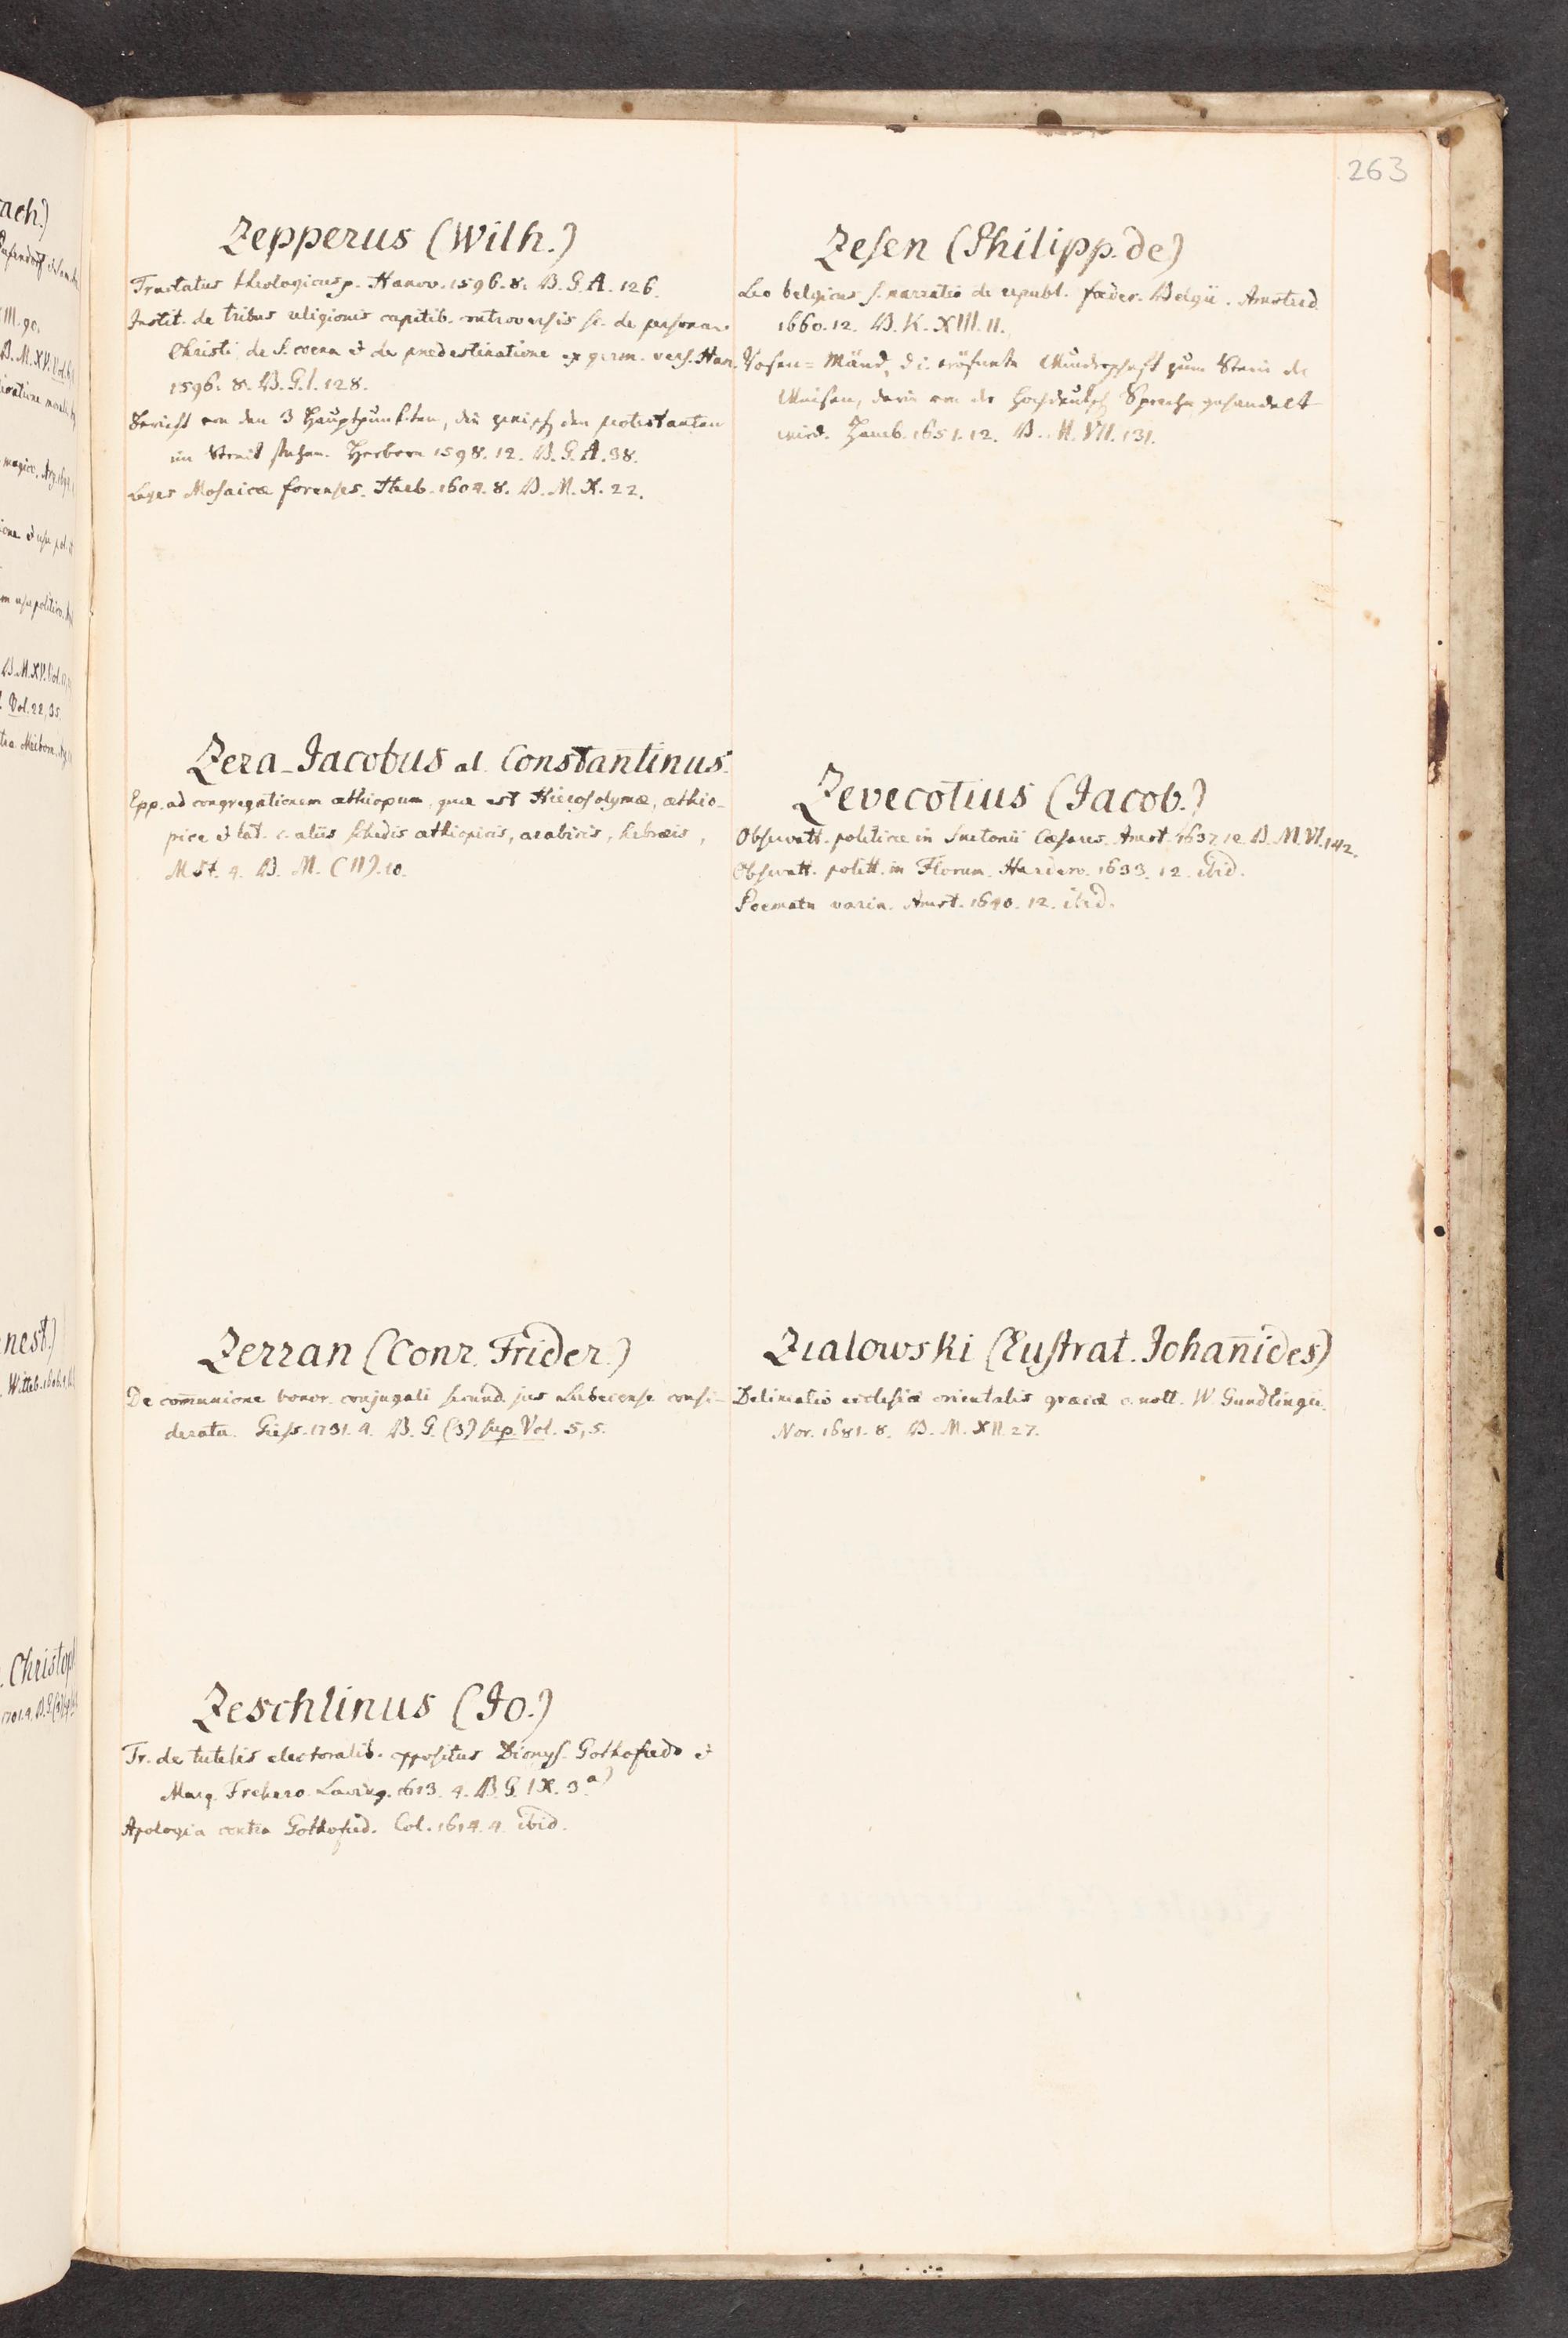 263
Zepperus (Wilh.)
Tractatus theologicus p. Hanov. 1596. 8. B. G. A. 126.
Instit. de tribus religionis capitib. controversis sc. de persona
Christi, de S. coena et de praedestinatione ex germ. vers. Han.
1596. 8. B. G. I. 128.
Bericht von den 3 Hauptpunkten, die zwisch den protestanten
im Streit stehen. Herborn 1598. 12. B. G. A. 38.
Leges Mosaicæ forenses. Herb. 1604. 8. B. M. X. 22.
Zera-Jacobus al. Constantinus.
Epp. ad congregationem æthiopum, quæ est Hierosolymæ, æthio-
pice et lat. c. aliis schedis æthiopicis, arabicis, hebræis,
MSt. 4. B. M. (II). 10.
Zerran (Conr. Frider.)
De com̄unione bonor. conjugali secund. jus Lubecense consi-
derata. Giess. 1731. 4. B. G. (3) sup. Vol. 5, 5.
Zeschlinus (Jo.)
Tr. de tutelis electoralib. oppositus Dionys. Gothofredo et
Marq. Frehero. Lauing. 1613. 4. B. G. IX. 3 a)
Apologia contra Gothofred. Col. 1614. 4. ibid.
Zesen (Philipp. de)
Leo belgicus s. narratio de republ. foeder. Belgii. Amsted.
1660. 12. B. K. XIII. 11.
Rosen-Mând, d. i. eröfnete Wunderschaft zum Stein der
Weisen, darin von der hochdeutsch Sprache gehandelt
wird. Hamb. 1651. 12. B. M. VII. 131.
Zevecotius (Jacob.)
Observatt. politicæ in Suetonii Cæsares. Amst. 1637. 12. B. M. VI. 142.
Observatt. politt. in Florum. Harderv. 1633. 12. ibid.
Poemata varia. Amst. 1640. 12. ibid.
Zialowski (Eustrat. Johan̄ides)
Delineatio ecclesiæ orientalis græcæ c. nott. W. Gundlingii.
Nor. 1681. 8. B. M. XII. 27.